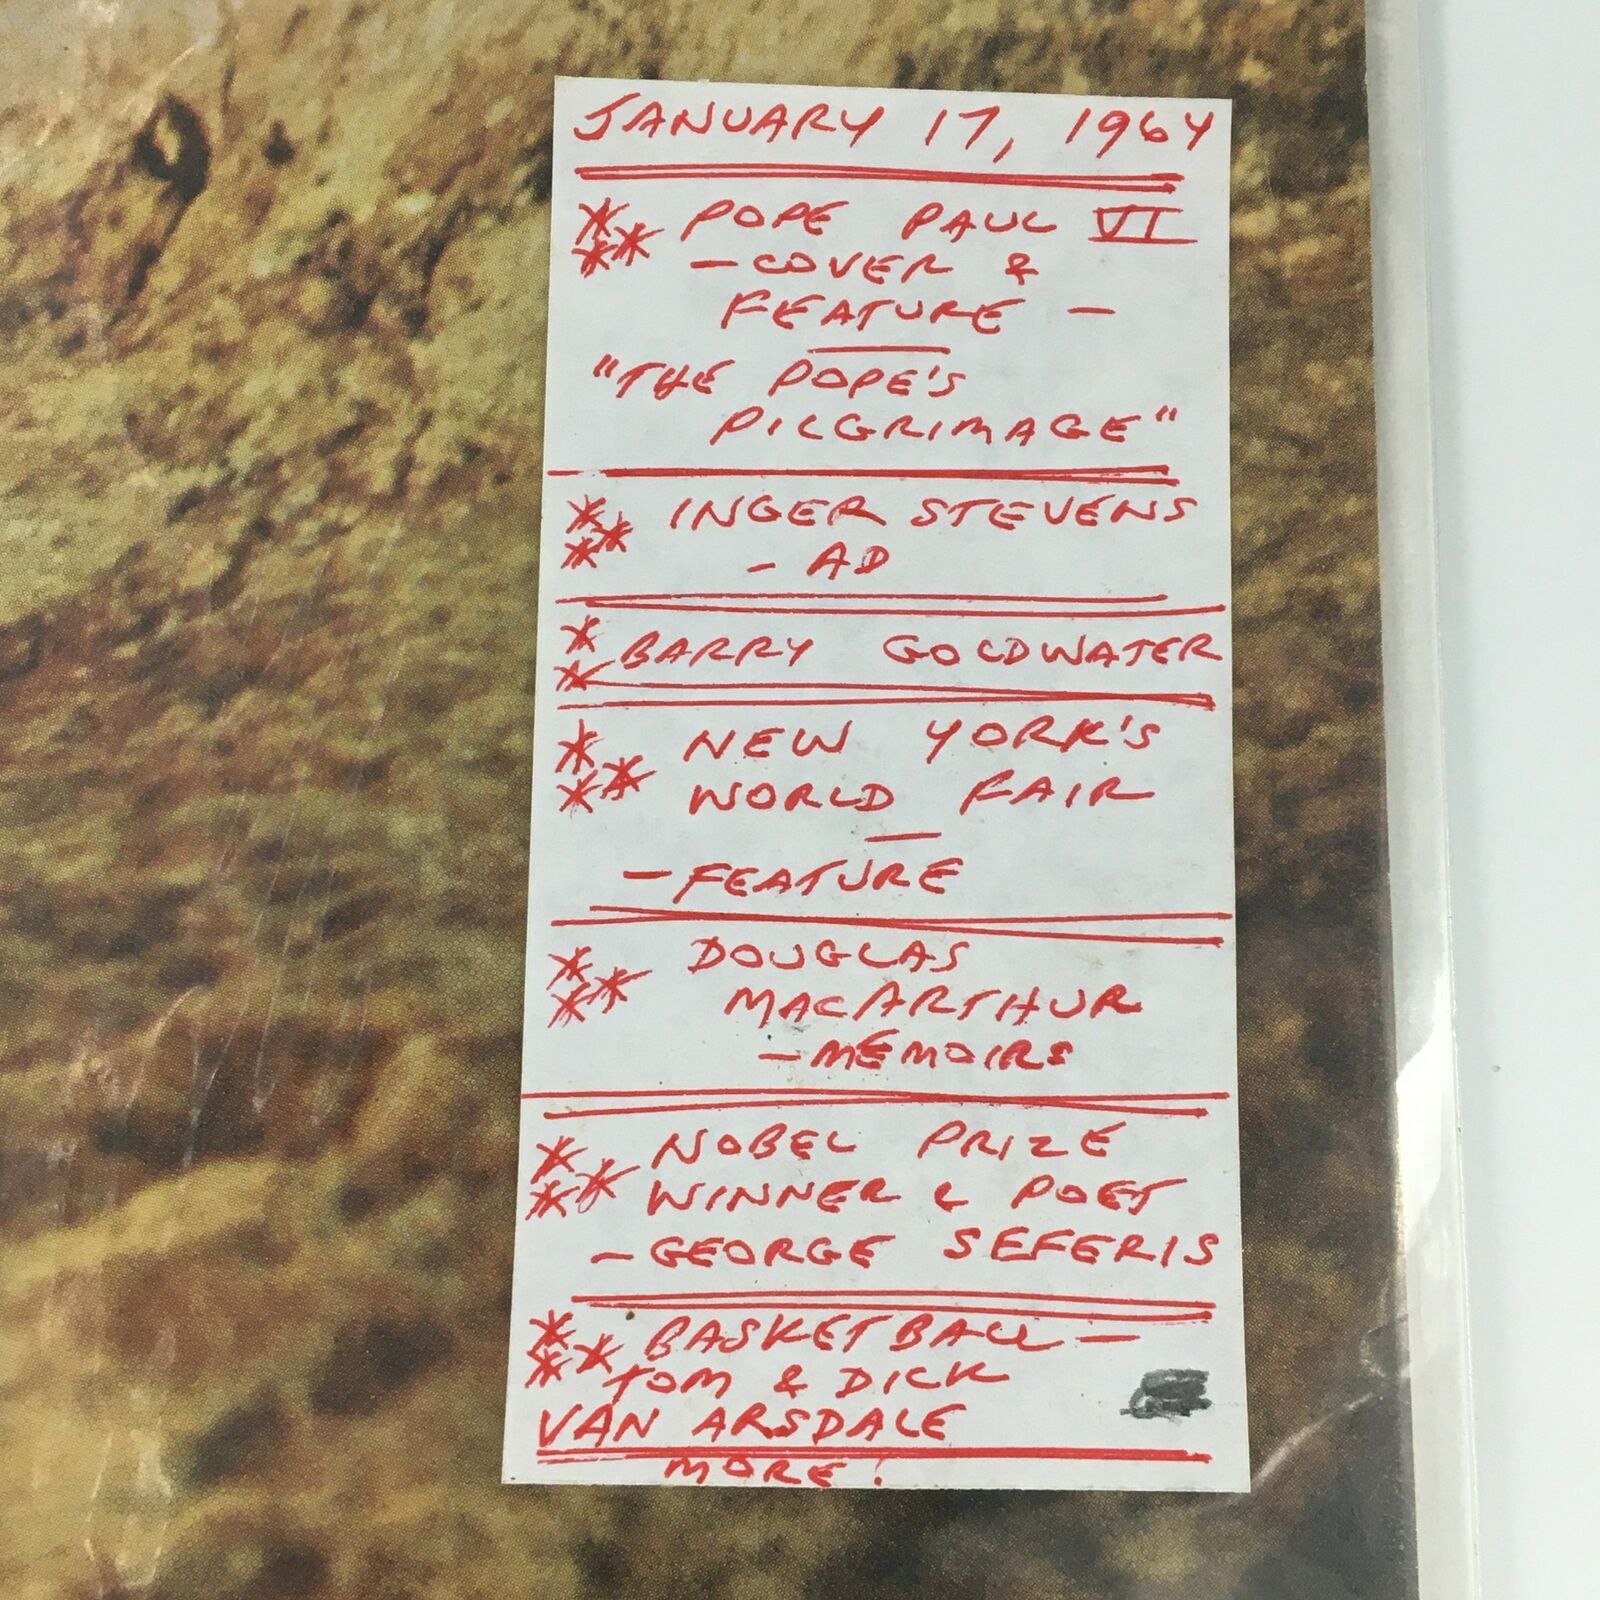 JANUARY 17, 1964
* POPE PAUL VI
** - COVER &
FEATURE -
"THE POPE'S
PILGRIMAGE"
* INGER STEVENS
** - AD
* BARRY GOLDWATER
*
* NEW YORK'S
** WORLD FAIR
- FEATURE
* DOUGLAS
** MACARTHUR
- MEMOIRS
* NOBEL PRIZE
** WINNER & POET
- GEORGE SEFERIS
* BASKETBALL -
** TOM & DICK
VAN ARSDALE
MORE!